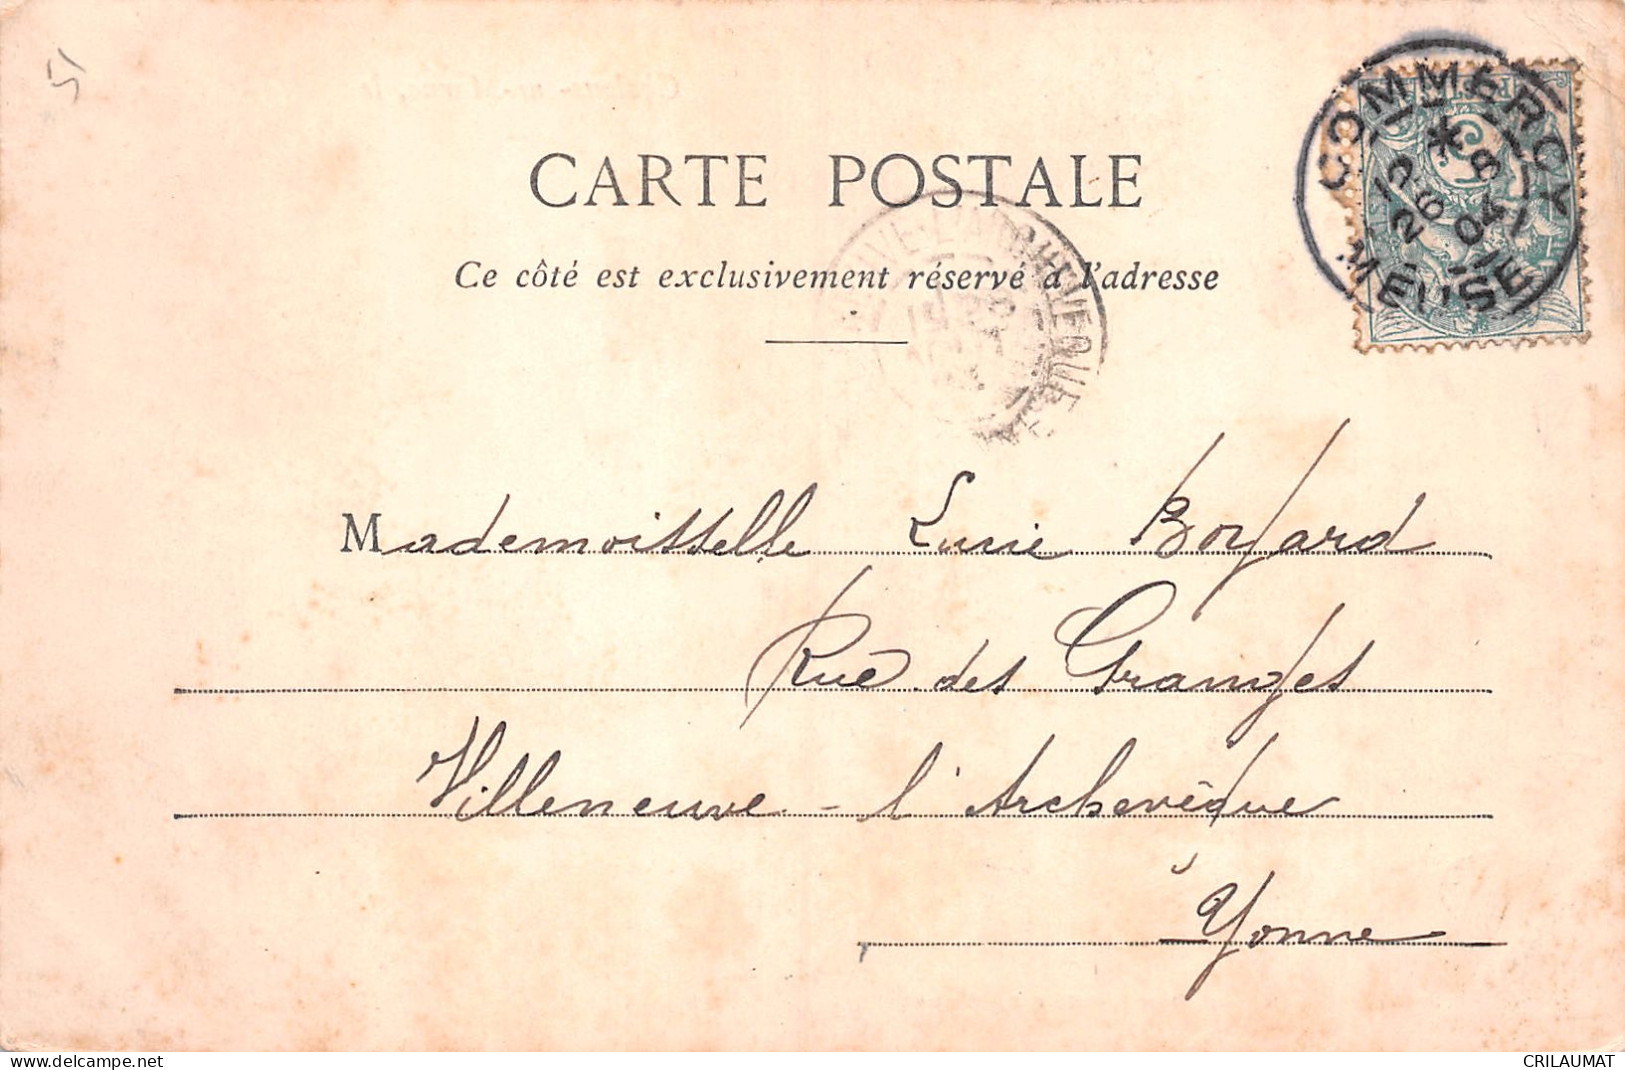 51
COMMERCY
*
26 8
04
MEUSE
CARTE POSTALE
Ce côté est exclusivement réservé à l'adresse
Mademoisselle Lucie Boyard
Rue des Granges
Villeneuve - l'Archevêque
Yonne
www.delcampe.net
CRILAUMAT